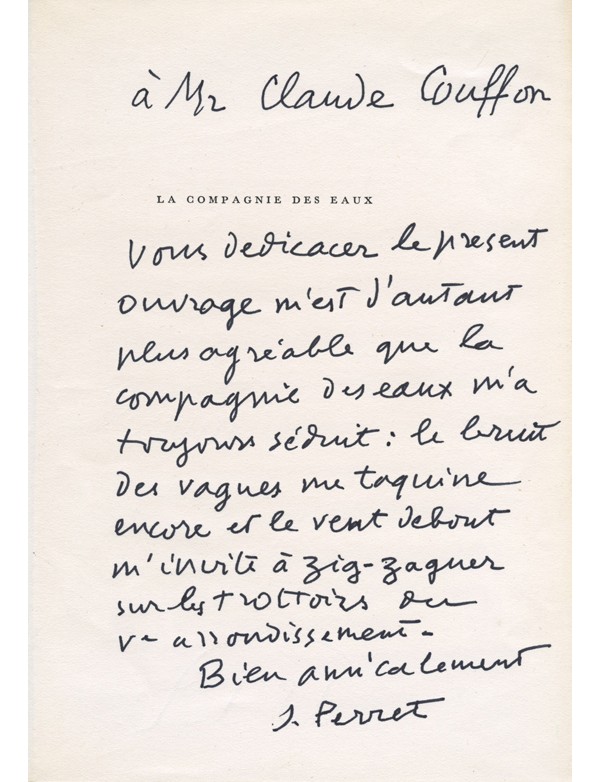 à Mr Claude Couffon
LA COMPAGNIE DES EAUX
Vous dedicacer le present
ouvrage m'est d'autant
plus agréable que la
compagnie des eaux m'a
toujours séduit : le bruit
des vagues me taquine
encore et le vent debout
m'invite à zig-zaguer
sur les trottoirs du
Ve arrondissement.
Bien amicalement
J. Perret